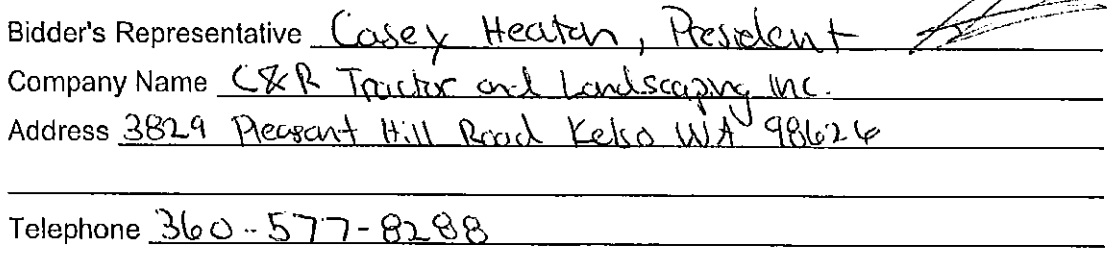 Bidder's Representative Casey Heaton, President
Company Name C&R Tractor and Landscaping Inc.
Address 3829 Pleasant Hill Road Kelso WA 98626
Telephone 360-577-8288